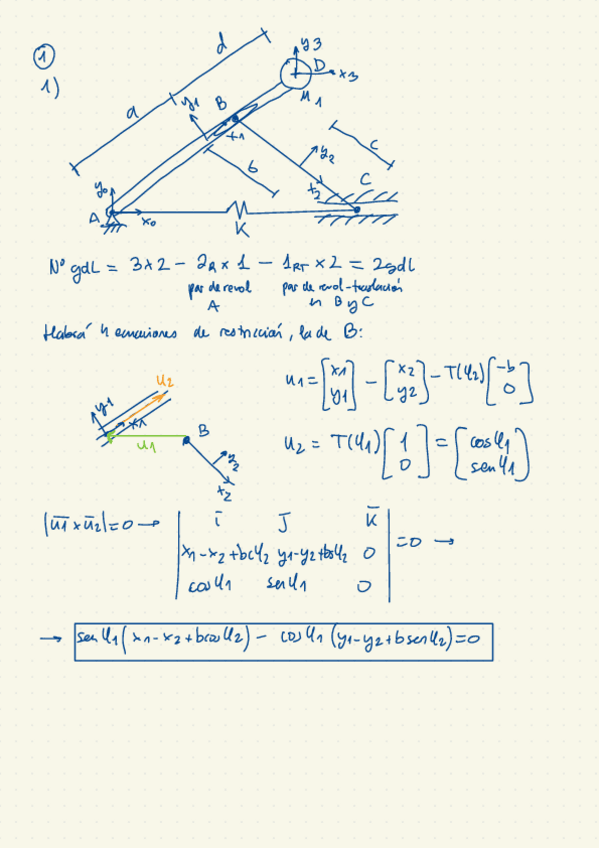 ①
1)
d
y3
D
x3
M1
a
y1
B
x1
b
y2
x2
c
C
y0
A
x0
K
Nº gdL = 3x2 - 2R x 1 - 1RT x 2 = 2gdL
par de revol par de revol-traslación
A en B y C
Habrá 4 ecuaciones de restricción, la de B:
u1 = [x1 y1] - [x2 y2] - T(φ2) [-b 0]
y1
x1
u2
u1
B
y2
x2
u2 = T(φ1) [1 0] = [cosφ1 senφ1]
|u̅1 x u̅2| = 0 →
i̅ J̅ K̅
x1-x2+bcφ2 y1-y2+bsφ2 0
cosφ1 senφ1 0
= 0 →
→ senφ1 (x1-x2+bcosφ2) - cosφ1 (y1-y2+bsenφ2) = 0